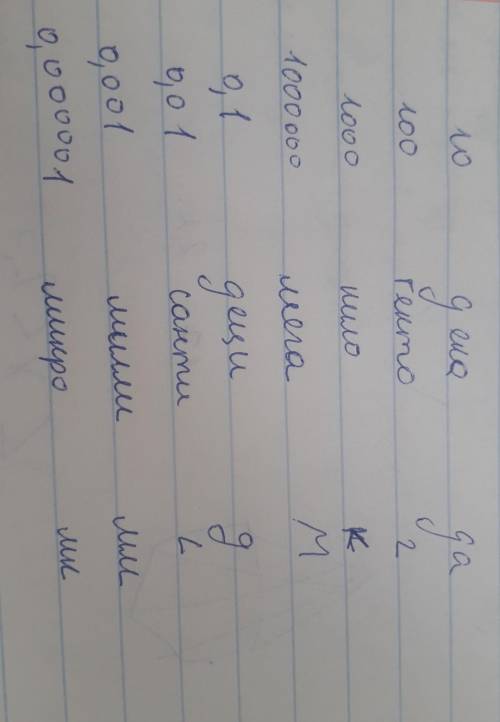 10 дека да
100 гекто г
1000 кило к
1000000 мега М
0,1 деци д
0,01 санти с
0,001 милли мм
0,000001 микро мк